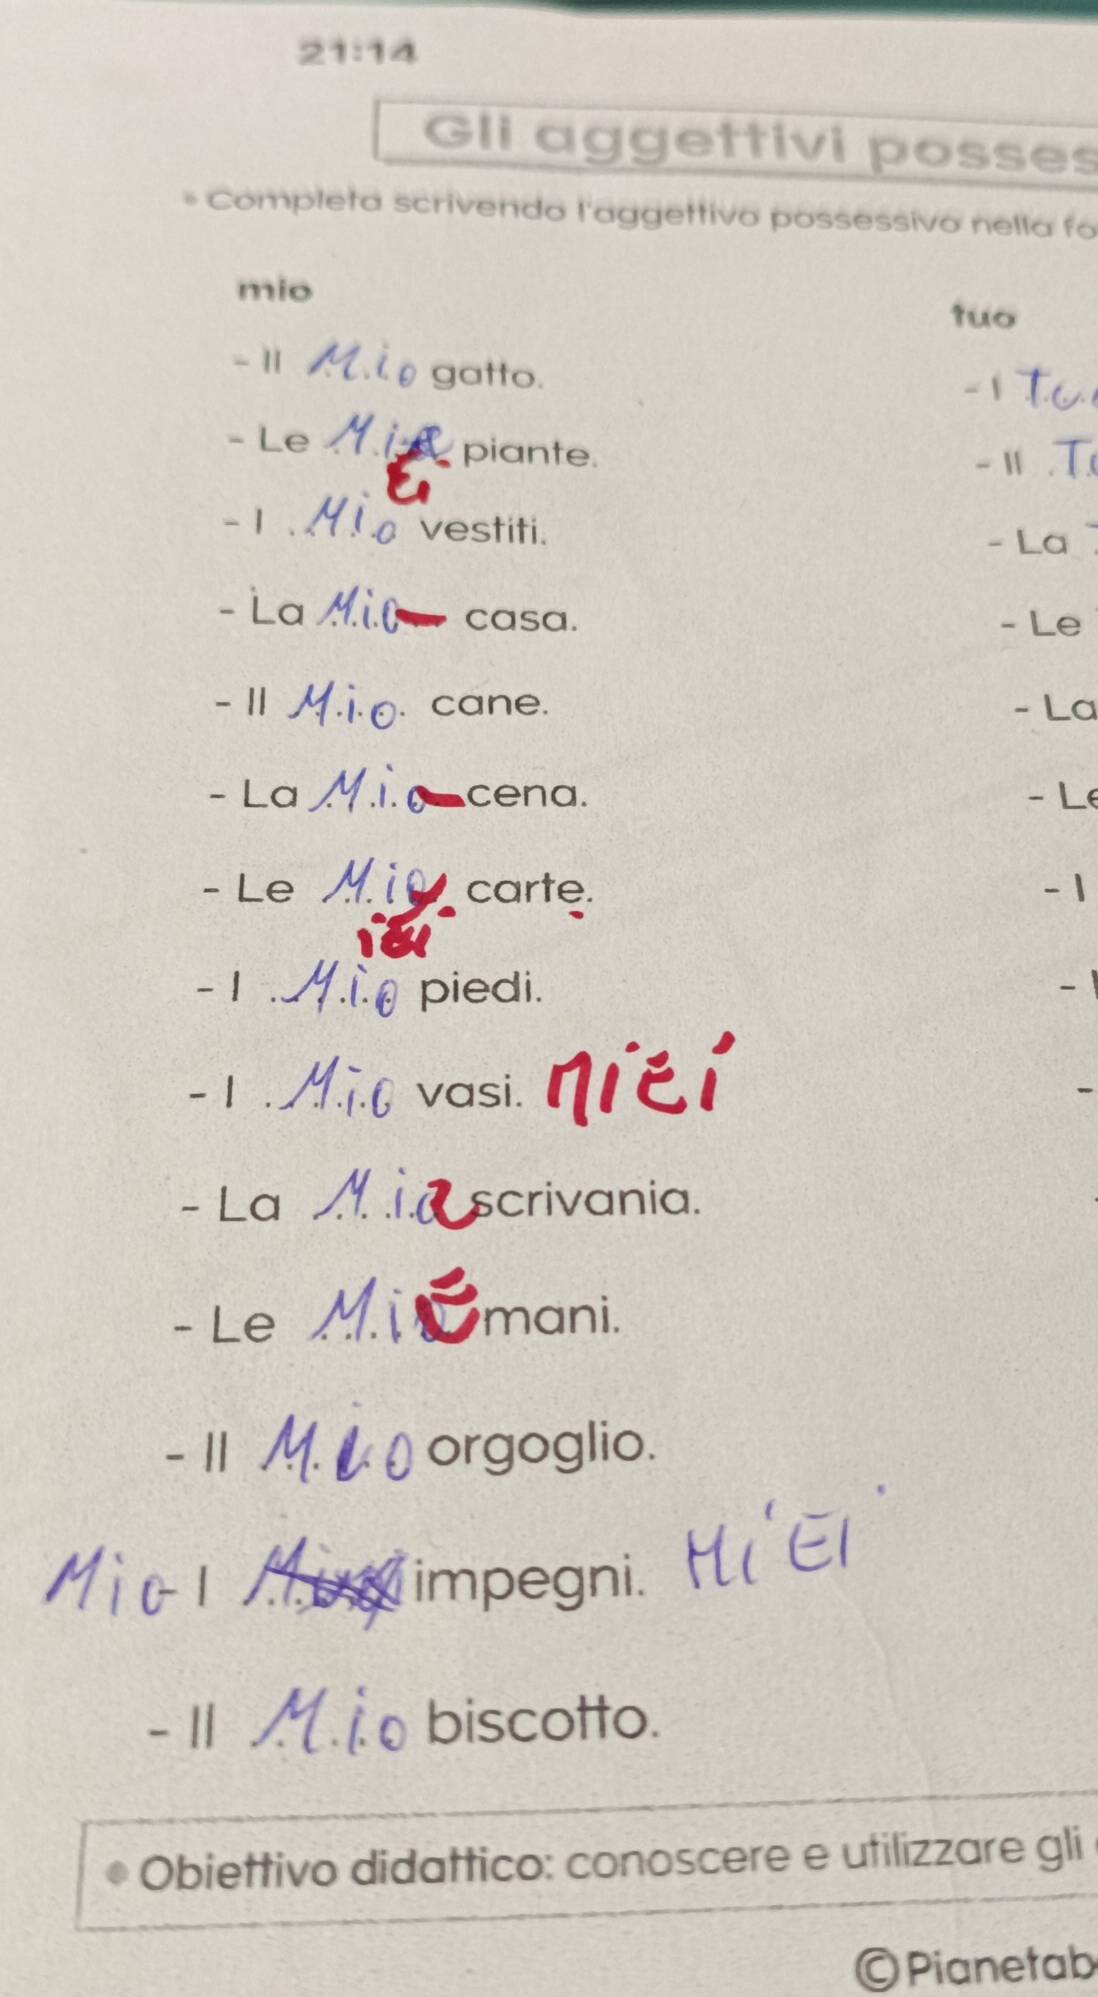 21:14
Gli aggettivi posses
Completa scrivendo l'aggettivo possessivo nella fo
mio
tuo
- Il Mio gatto.
- I
- Le piante.
- Il
- I Mio vestiti.
- La
- La Mio casa.
- Le
- Il Mio cane.
- La
- La Mio cena.
- Le
- Le Mie carte.
iei
- I
- I Mio piedi.
-
- I Mio vasi. MiEi
-
- La Mia scrivania.
- Le MiE mani.
- Il Mio orgoglio.
Mio - I impegni. MiEI
- Il Mio biscotto.
Obiettivo didattico: conoscere e utilizzare gli
©Pianetab